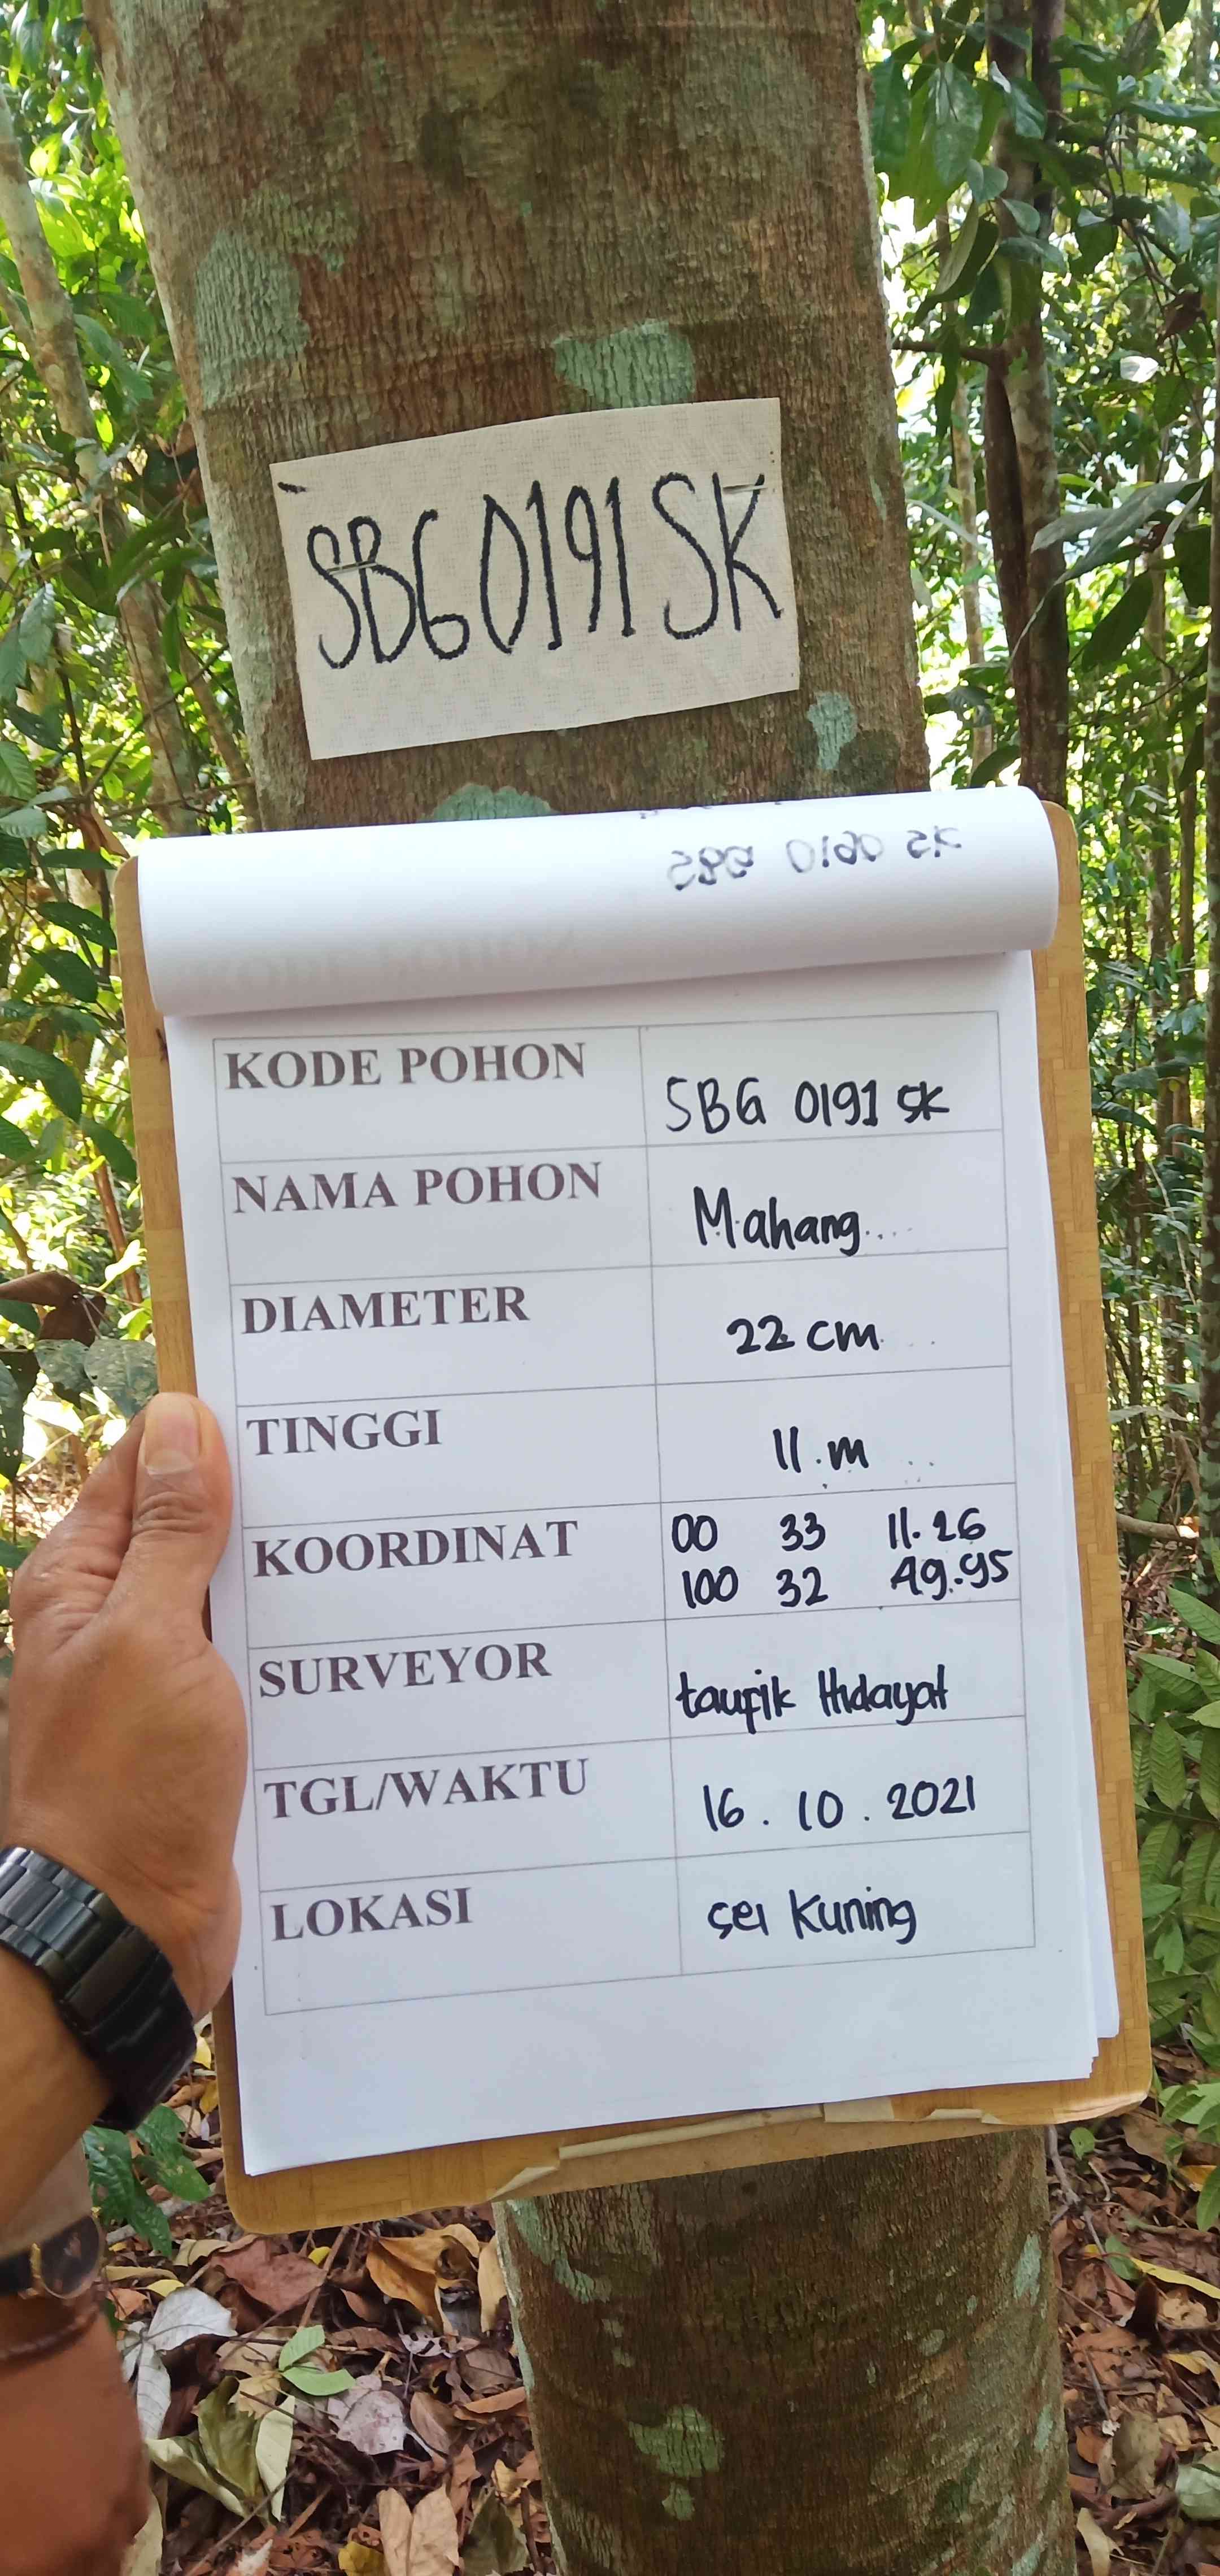 SBG 0191 SK
SBG 0190 SK
KODE POHON SBG 0191 SK
NAMA POHON Mahang
DIAMETER 22 cm
TINGGI 11 m
KOORDINAT 00 33 11.26
100 32 49.95
SURVEYOR taufik Hidayat
TGL/WAKTU 16 . 10 . 2021
LOKASI sei Kuning